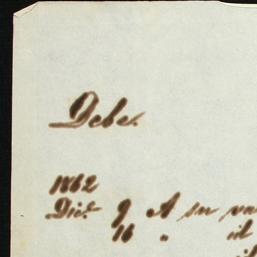 Debe.
1862
Dice. 9 A su va
16 " id
id